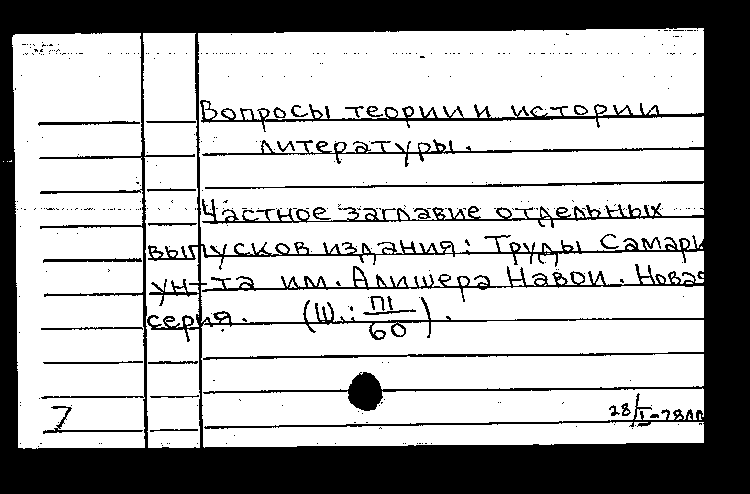 Вопросы теории и истории
литературы.
Частное заглавие отдельных
выпусков издания: Труды Самарк
ун-та им. Алишера Навои. Новая
серия. (Ш.: П1/60).
7
28/I-78